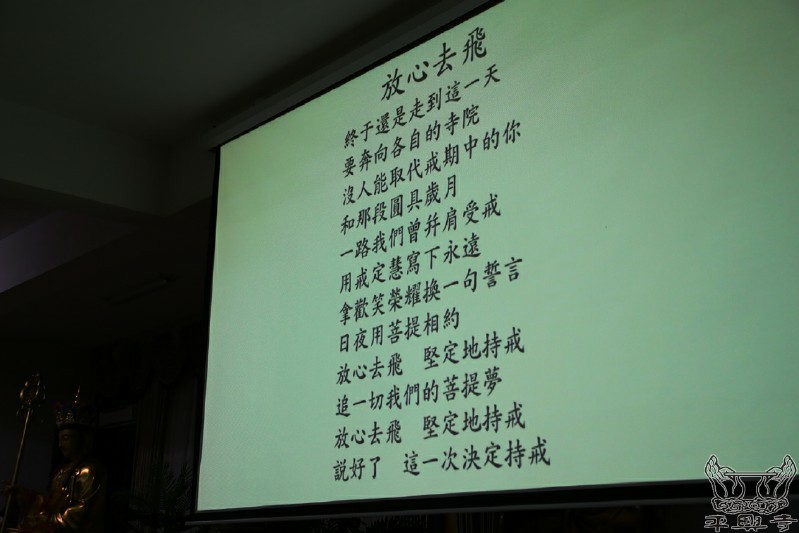 放心去飛
終于還是走到這一天
要奔向各自的寺院
沒人能取代戒期中的你
和那段圓具歲月
一路我們曾幷肩受戒
用戒定慧寫下永遠
拿歡笑榮耀換一句誓言
日夜用菩提相約
放心去飛　堅定地持戒
追一切我們的菩提夢
放心去飛　堅定地持戒
說好了　這一次決定持戒
平興寺